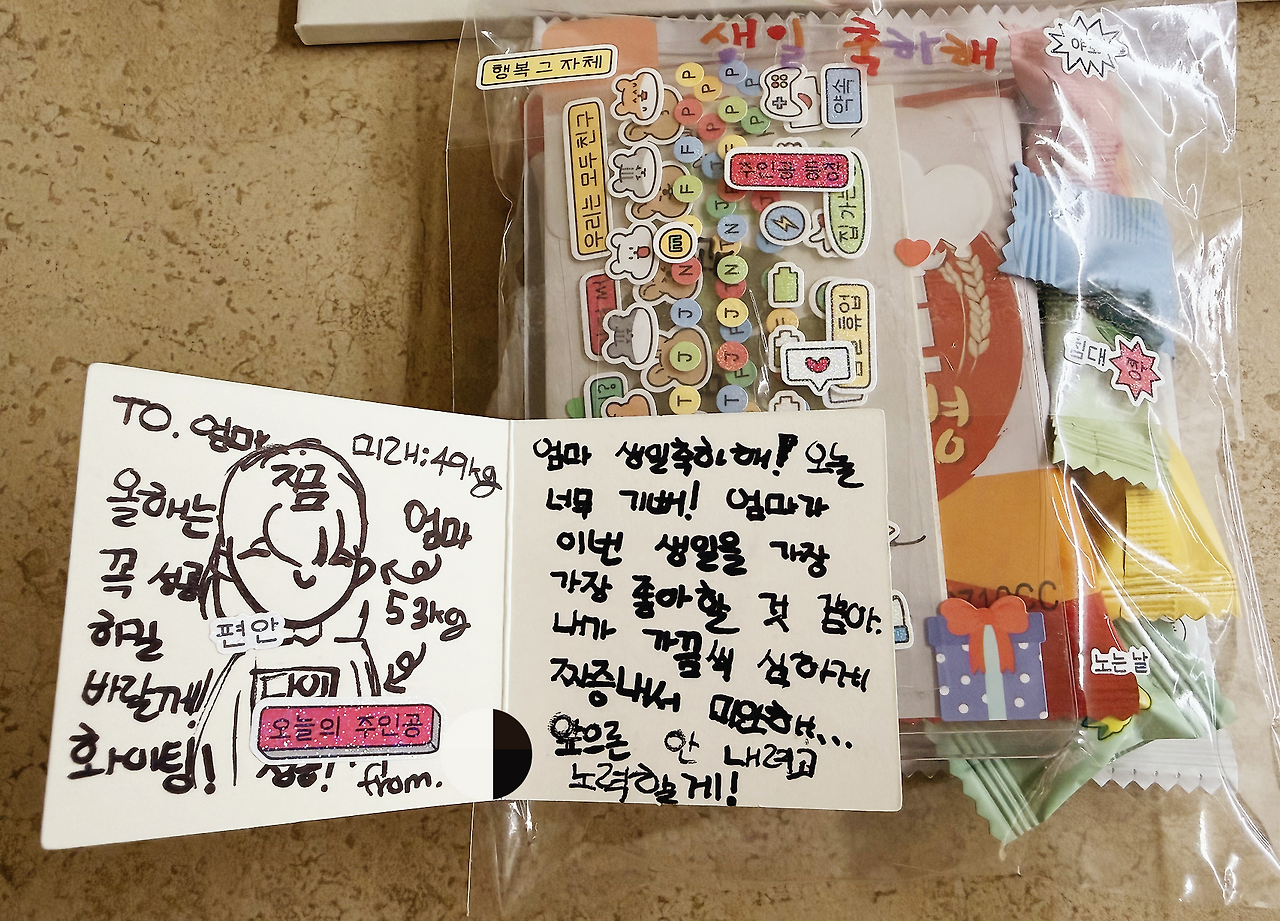 생일 축하
행복 그 자체
야호
우리는 모두 친구
약속
집 가는
휴업
노는 날
TO. 엄마
미래:49kg
지금
올해는
꼭 성공
하길
바랄게!
화이팅!
엄마
53kg
편안
오늘의 주인공
from.
엄마 생일축하해! 오늘
너무 기뻐! 엄마가
이번 생일을 가장
가장 좋아할 것 같아.
내가 가끔씩 심하게
짜증내서 미안해...
앞으론 안 내려고
노력할게!